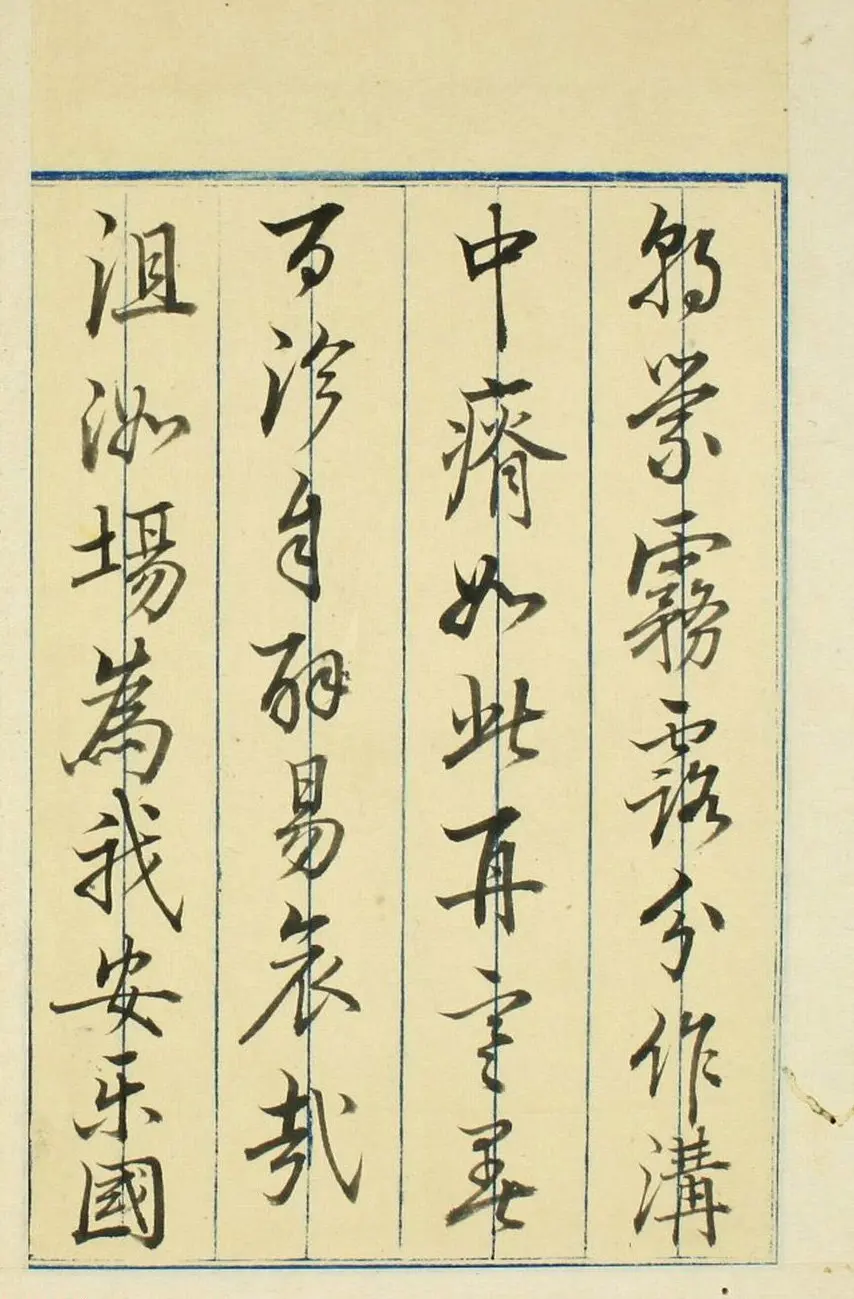 朝蒙霧露分作溝
中瘠如此再寒暑
百沴自辟易哀哉
沮洳場為我安樂國